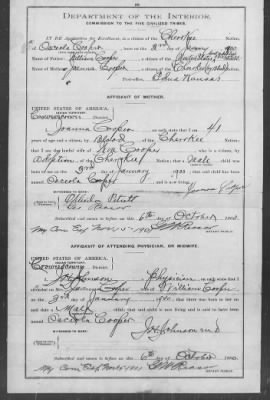 DEPARTMENT OF THE INTERIOR.
COMMISSION TO THE FIVE CIVILIZED TRIBES.
IN RE Application for Enrollment, as a citizen of the Cherokee Nation,
of Osceola Cooper, born on the 2nd day of January, 1900
Name of Father: William Cooper a citizen of the United States Nation.
Name of Mother: Joanna Cooper a citizen of the Cherokee Nation.
Postoffice Edna Kansas
AFFIDAVIT OF MOTHER.
UNITED STATES OF AMERICA,
INDIAN TERRITORY,
District.
I, Joanna Cooper, on oath state that I am 41
years of age and a citizen, by Blood, of the Cherokee Nation;
that I am the lawful wife of Wm Cooper, who is a citizen, by
Adoption, of the Cherokee Nation; that a Male child was
born to me on the 2nd day of January, 1900; that said child has been
named Osceola Cooper, and is now living.
Joanna Cooper
WITNESSES TO MARK:
Subscribed and sworn to before me this 6th day of October, 1900.
My Com Exp Nov 15 1901
NOTARY PUBLIC.
AFFIDAVIT OF ATTENDING PHYSICIAN, OR MIDWIFE.
UNITED STATES OF AMERICA,
INDIAN TERRITORY,
District.
I, J H Johnson, a Physician, on oath state that I
attended on Mrs. Joanna Cooper, wife of William Cooper
on the 2nd day of January, 1900; that there was born to her on
said date a Male child; that said child is now living and is said to have been
named Osceola Cooper
J H Johnson M D
WITNESSES TO MARK:
Subscribed and sworn to before me this 6th day of October, 1900.
My Com Exp Nov 15 1901
NOTARY PUBLIC.